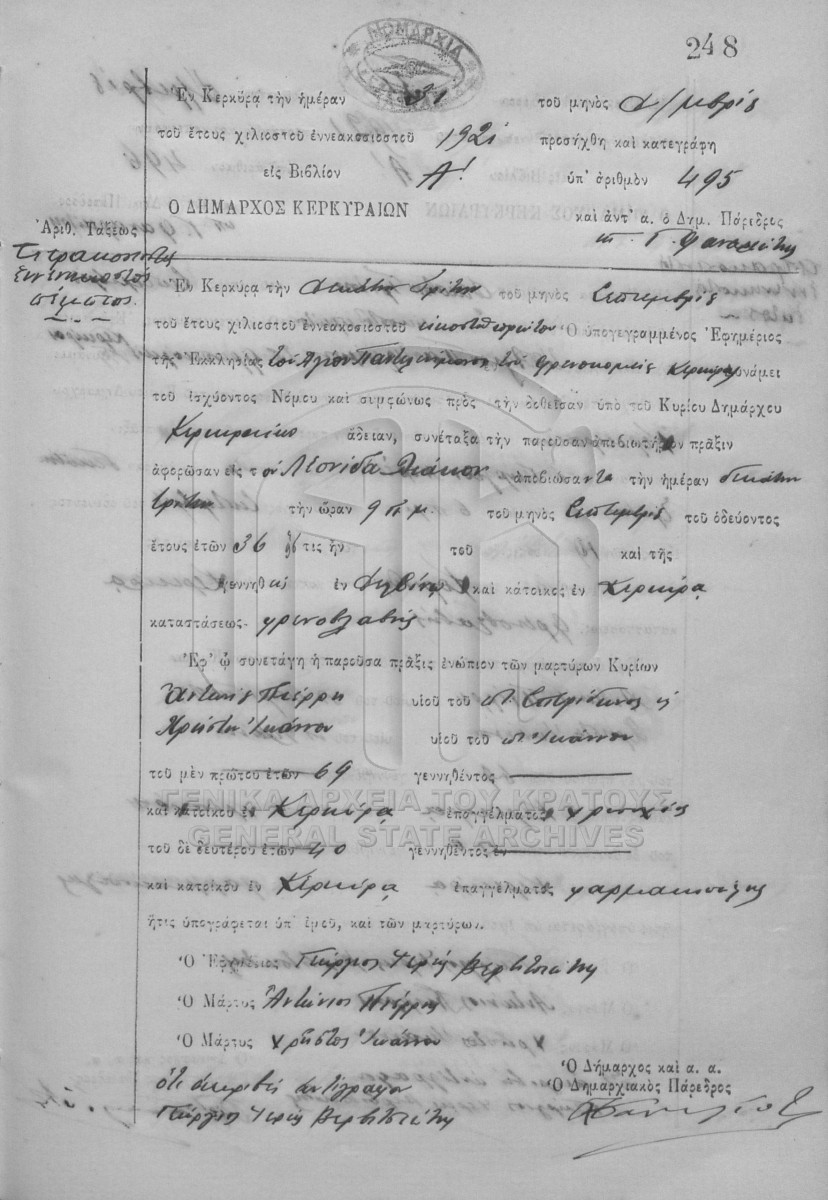 248
ΝΟΜΑΡΧΙΑ
Ἐν Κερκύρᾳ τὴν ἡμέραν τοῦ μηνὸς
τοῦ ἔτους χιλιοστοῦ ἐννεακοσιοστοῦ 1921 προσήχθη καὶ κατεγράφη
εἰς Βιβλίον Α! ὑπ' ἀριθμὸν 495
Ο ΔΗΜΑΡΧΟΣ ΚΕΡΚΥΡΑΙΩΝ
καὶ ἀντ' α. ὁ Δημ. Πάρεδρος
Ἀριθ. Τάξεως
πέμπτος
Ἐν Κερκύρᾳ τὴν δεκάτην τρίτην τοῦ μηνὸς Σεπτεμβρίου
τοῦ ἔτους χιλιοστοῦ ἐννεακοσιοστοῦ εἰκοστοῦ πρώτου Ὁ ὑπογεγραμμένος Ἐφημέριος
τῆς Ἐκκλησίας τοῦ Ἁγίου Παντελεήμονος τοῦ Φρενοκομείου Κερκύρας δυνάμει
τοῦ ἰσχύοντος Νόμου καὶ συμφώνως πρὸς τὴν δοθεῖσαν ὑπὸ τοῦ Κυρίου Δημάρχου
Κερκυραίων ἄδειαν, συνέταξα τὴν παροῦσαν ἀποβιωτήριον πρᾶξιν
ἀφορῶσαν εἰς τὸν Λεονίδα Διάκον ἀποβιώσαντα τὴν ἡμέραν δεκάτην
τρίτην τὴν ὥραν 9 π.μ. τοῦ μηνὸς Σεπτεμβρίου τοῦ ὁδεύοντος
ἔτους ἐτῶν 36 ὅς τις ἦν τοῦ καὶ τῆς
γεννηθεὶς ἐν Δελβίνῳ καὶ κάτοικος ἐν Κερκύρᾳ
καταστάσεως φρενοβλαβής
Ἐφ' ᾧ συνετάγη ἡ παροῦσα πρᾶξις ἐνώπιον τῶν μαρτύρων Κυρίων
Ἀντώνη Πιέρρη υἱοῦ τοῦ π. Σπυρίδωνος ἢ
Χρήστη Ἰωάννου υἱοῦ τοῦ π. Ἰωάννου
τοῦ μὲν πρώτου ἐτῶν 69 γεννηθέντος
καὶ κατοίκου ἐν Κερκύρᾳ ἐπαγγέλματος
ΓΕΝΙΚΑ ΑΡΧΕΙΑ ΤΟΥ ΚΡΑΤΟΥΣ
GENERAL STATE ARCHIVES
τοῦ δὲ δευτέρου ἐτῶν 40 γεννηθέντος ἐν
καὶ κατοίκου ἐν Κερκύρᾳ ἐπαγγέλματος φαρμακοποιός
ἥτις ὑπογράφεται ὑπ' ἐμοῦ, καὶ τῶν μαρτύρων.
Ὁ Ἐφημέριος Γεώργιος Ἱερεὺς
Ὁ Μάρτυς Ἀντώνιος Πιέρρης
Ὁ Μάρτυς Χρῆστος Ἰωάννου
Ὁ Δήμαρχος καὶ α. α.
ὅτι ἀκριβὲς ἀντίγραφον Ὁ Δημαρχιακὸς Πάρεδρος
Γεώργιος Ἱερεὺς